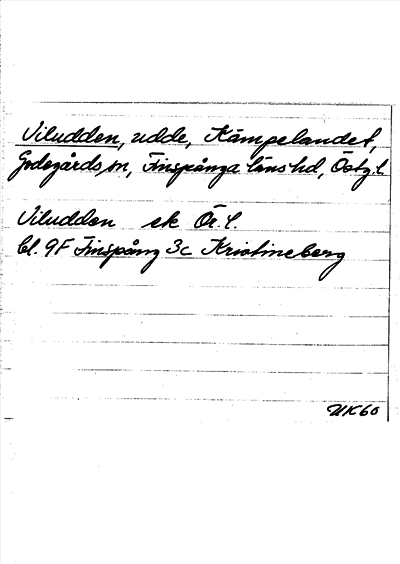 Viludden, udde, Kämpelandet,
Godegårds sn, Finspånga läns hd, Östg. l.
Viludden ek Ö. l.
bl. 9F Finspång 3c Kristineberg
UK60